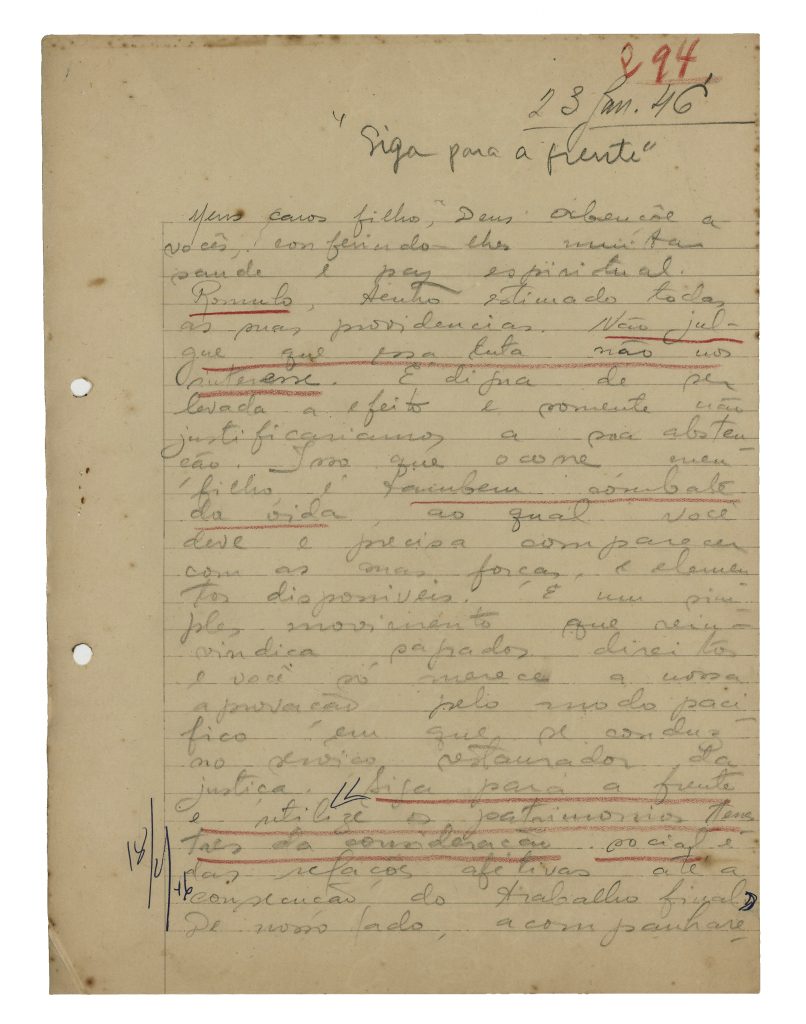 294
23 Jan. 46
"Siga para a frente"
Meus caros filhos, Deus abençôe a
vocês, conferindo-lhes muita
saude e paz espiritual.
Romulo, tenho estimado todas
as suas providencias. Não jul-
gue que essa luta não nos
interesse. É digna de ser
levada a efeito e somente não
justificariamos a sua absten-
ção. Isso que ocorre meu
filho é tambem combate
da vida, ao qual você
deve e precisa comparecer
com as suas forças, e elemen
tos disponiveis. É um sim-
ples movimento que rein-
vindica sagrados direitos
e você só merece a nossa
aprovação pelo modo paci-
fico em que se conduz
no serviço restaurador da
justiça. "Siga para a frente
e utilize os patrimonios terres
tres da consideração social e
das relações afetivas até a
consecução do trabalho final"
De nosso lado, acompanhare-
18/2/46